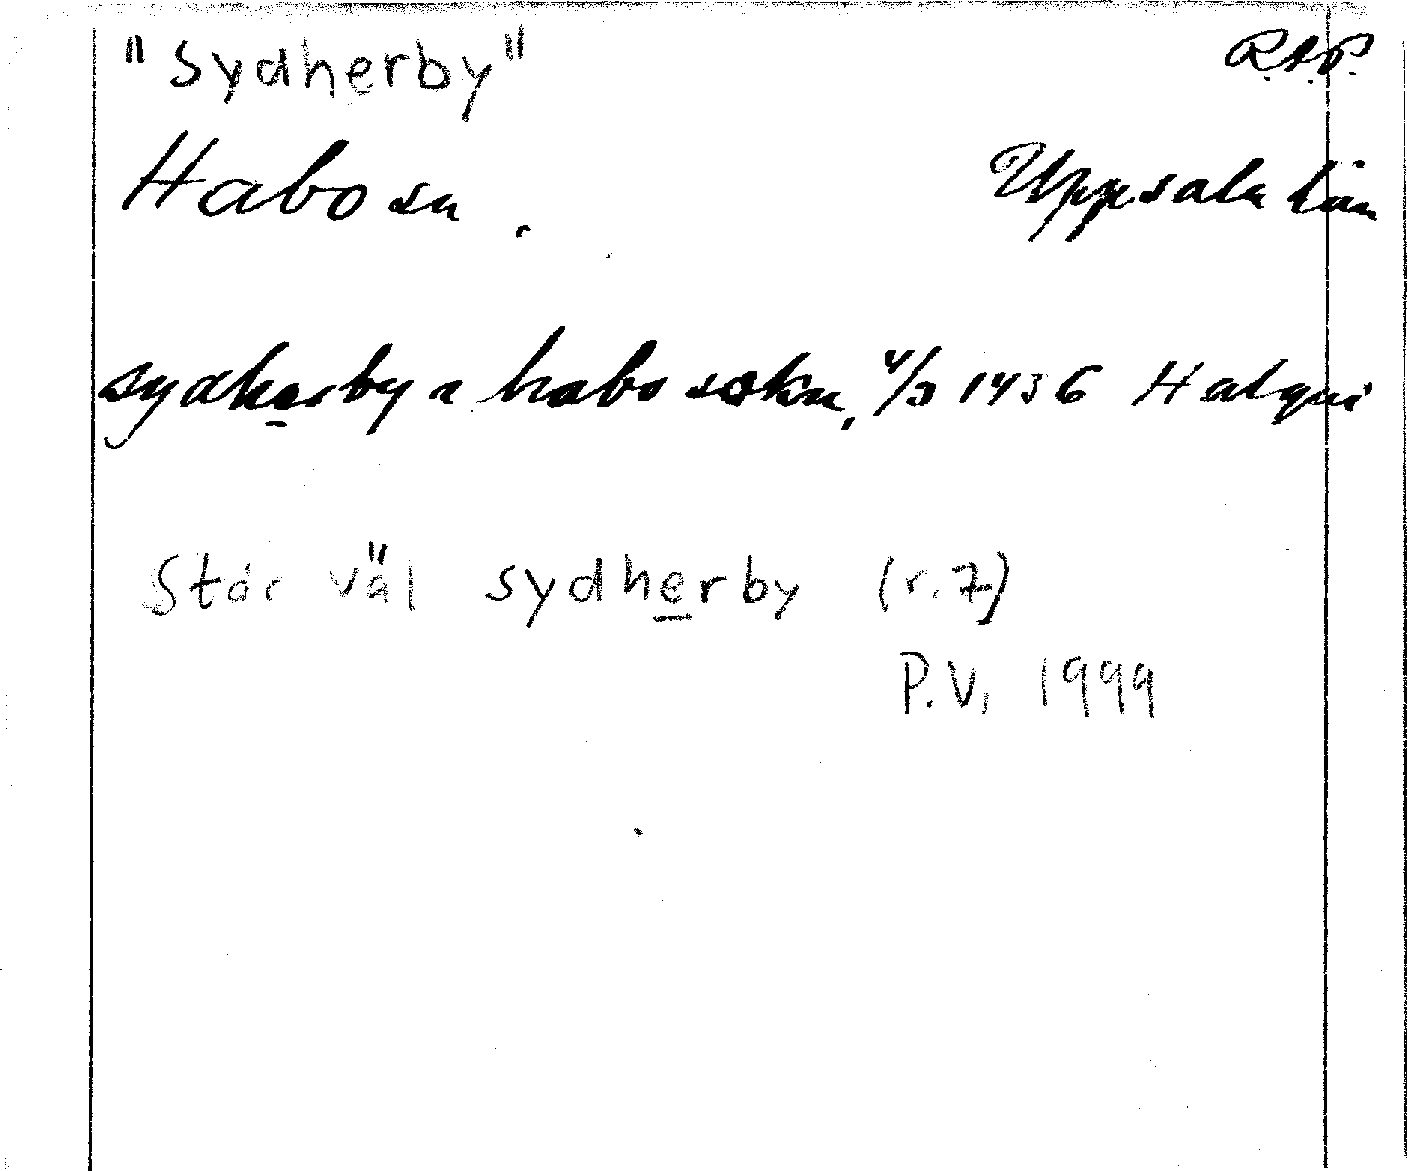 "Sydherby" R.A.P.
Habo sn. Uppsala län
sydherby a habo sokn, 4/3 1436 Halqui
Står väl sydherby (r.7)
P.V. 1999